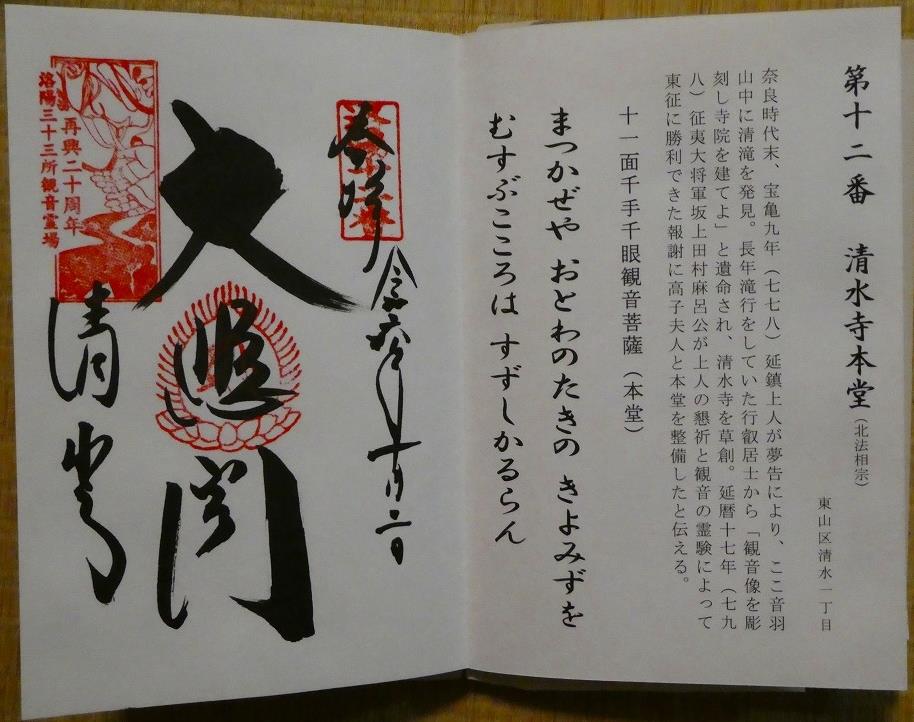 第十二番　清水寺本堂（北法相宗）
東山区清水一丁目
奈良時代末、宝亀九年（七七八）延鎮上人が夢告により、ここ音羽
山中に清滝を発見。長年滝行をしていた行叡居士から「観音像を彫
刻し寺院を建てよ」と遺命され、清水寺を草創。延暦十七年（七九
八）征夷大将軍坂上田村麻呂公が上人の懇祈と観音の霊験によって
東征に勝利できた報謝に高子夫人と本堂を整備したと伝える。
十一面千手千眼観音菩薩（本堂）
まつかぜや おとわのたきの きよみずを
むすぶこころは すずしかるらん
奉拝
令六年十月二日
大悲閣
再興二十周年
洛陽三十三所観音霊場
清水寺